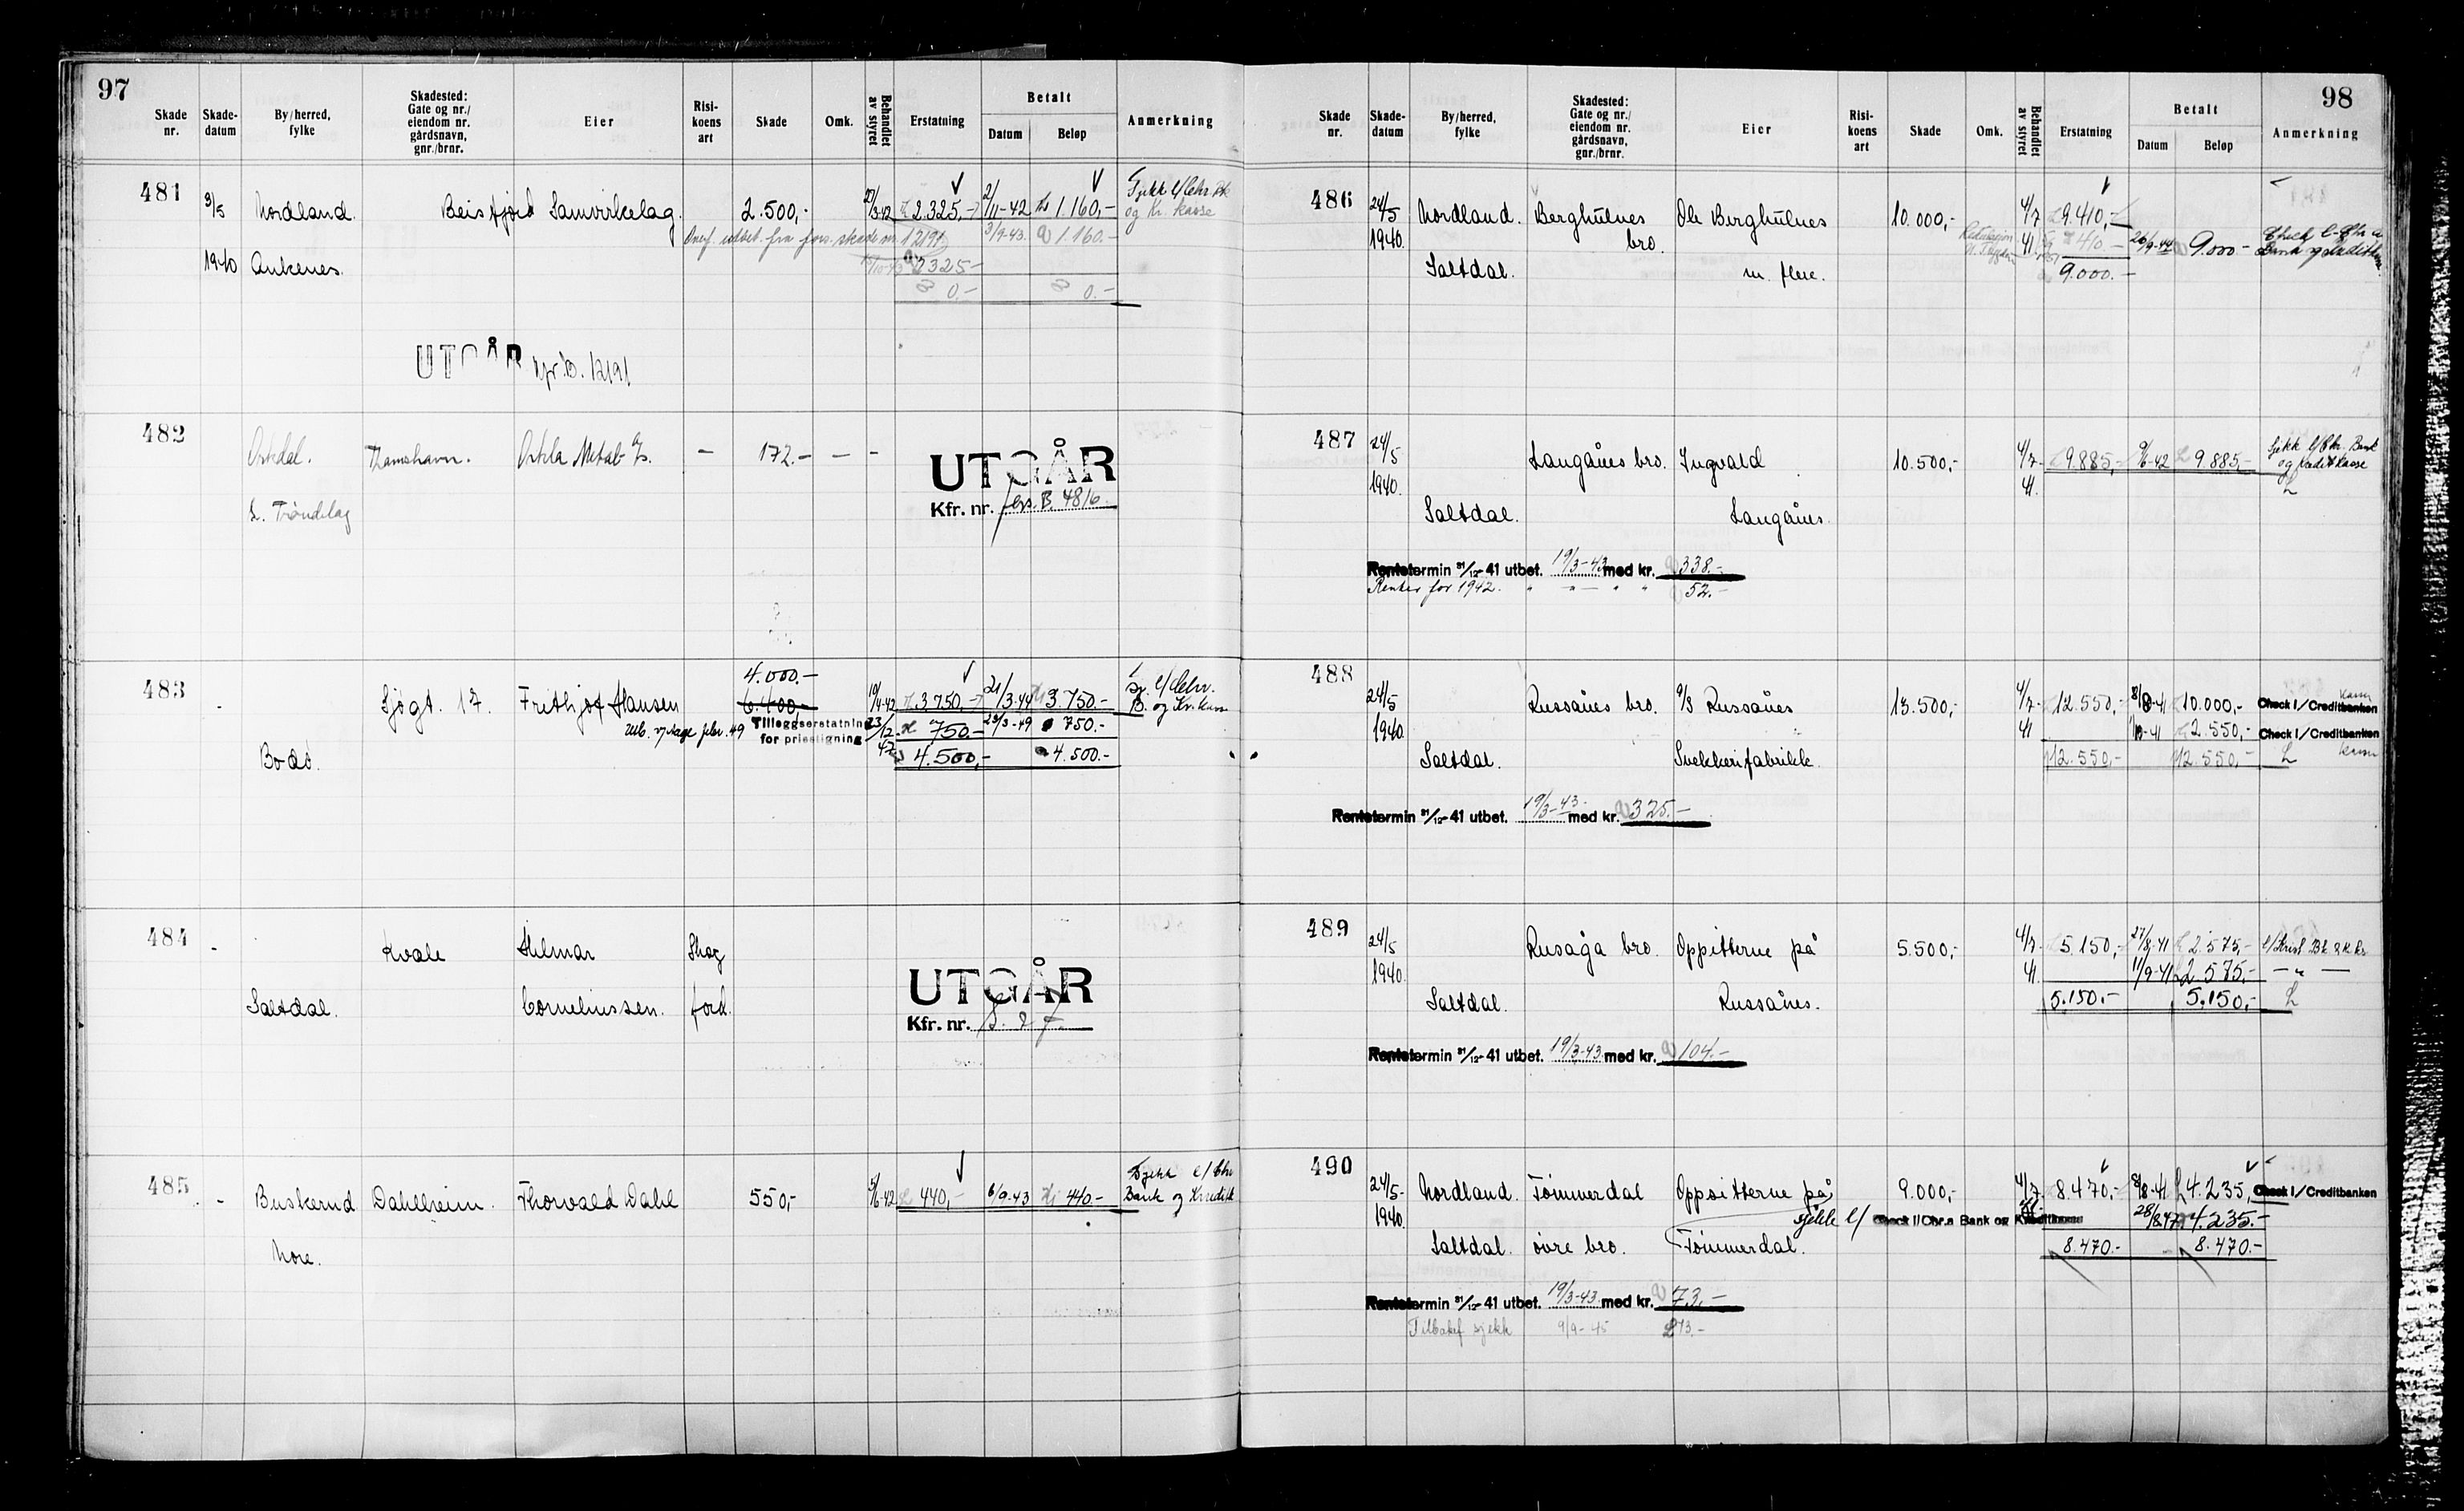 97
Skade nr. Skade-datum By/herred, fylke Skadested: Gate og nr./ eiendom nr. gårdsnavn, gnr./brnr. Eier Risi-koens art Skade Omk. Behandlet av styret Erstatning Betalt Datum Beløp Anmerkning
481 9/5 Nordland. Beisfjord Samvirkelag. 2.500,- 3-42 2.325,- 2/11-42 1.160,-
og Kr. kasse
12191 3/9-43. 1.160.-
1940 Ankenes. 2325-
0.- 0.-
UTGÅR 12191
482 Orkdal. Thamshavn. Orkla Metal A/s. - 172.- - -
UTGÅR
Kfr. nr. B. 4816.
S. Trøndelag
4.000.-
483 - Sjøgt. 17. Frithjof Hansen 6.400,- 19/4-42 3.750,- 21/3-44 3.750.-
B. og Kr. kasse
49 Tillegserstatning for prisstigning 23/12-47 750.- 23/3-49 750.-
Bodø. 4.500,- 4.500.-
484 - Kvale Hilmar Skog
Saltdal. Corneliussen. fork.
UTGÅR
Kfr. nr.
485 - Buskerud Dahlheim. Thorvald Dahl 550,- 5/6-42 440,- 6/9-43 440- Bank og Kreditk
Nore.
98
Skade nr. Skade-datum By/herred, fylke Skadested: Gate og nr./ eiendom nr. gårdsnavn, gnr./brnr. Eier Risi-koens art Skade Omk. Behandlet av styret Erstatning Betalt Datum Beløp Anmerkning
486 24/5 Nordland. Berghulnes Ole Berghulnes 10.000,- 4/7 9.410,-
1940. bro. 41 410.- 26/9-44 9.000-
Saltdal. m. flere. 9.000.-
487 24/5 Langånes bro. Ingvald 10.500,- 4/7- 9.885,- 9/6-42 9.885,- Sjekk l/Chr. Bank
og Kreditkasse
1940. 41.
Saltdal. Langånes.
Rentetermin 31/12-41 utbet. 19/3-43 med kr. 338.-
Renter for 1942. " - " - " " 52.-
488 24/5 Russånes bro. A/S Russånes 13.500,- 4/7- 12.550,- 10.000,- Check l/Creditbanken
1940. 41 2.550,- Check l/Creditbanken
Saltdal. 12.550,- 12.550,-
Rentetermin 31/12-41 utbet. 19/3-43- med kr. 325.-
489 24/5 Rusåga bro. Oppsitterne på 5.500,- 4/7- 5.150,- 27/8-41 2.575,-
1940. 41. 11/9-41 2.575,- - " -
Saltdal. Russånes. 5.150.- 5.150,-
Rentetermin 31/12-41 utbet. 19/3-43 med kr. 104.-
490 24/5- Nordland. Tømmerdal Oppsitterne på 9.000,- 4/7- 8.470,- 8-41 4.235,- Check l/Creditbanken
1940. sjekk l/ Check l/Chr.a Bank og Kreditkasse 28/8.47 4.235.-
Saltdal. øvre bro. Tømmerdal. 8.470.- 8.470.-
Rentetermin 31/12-41 utbet. 19/3-43 med kr. 73.-
Tilbakef sjekk 9/9-45 73,-